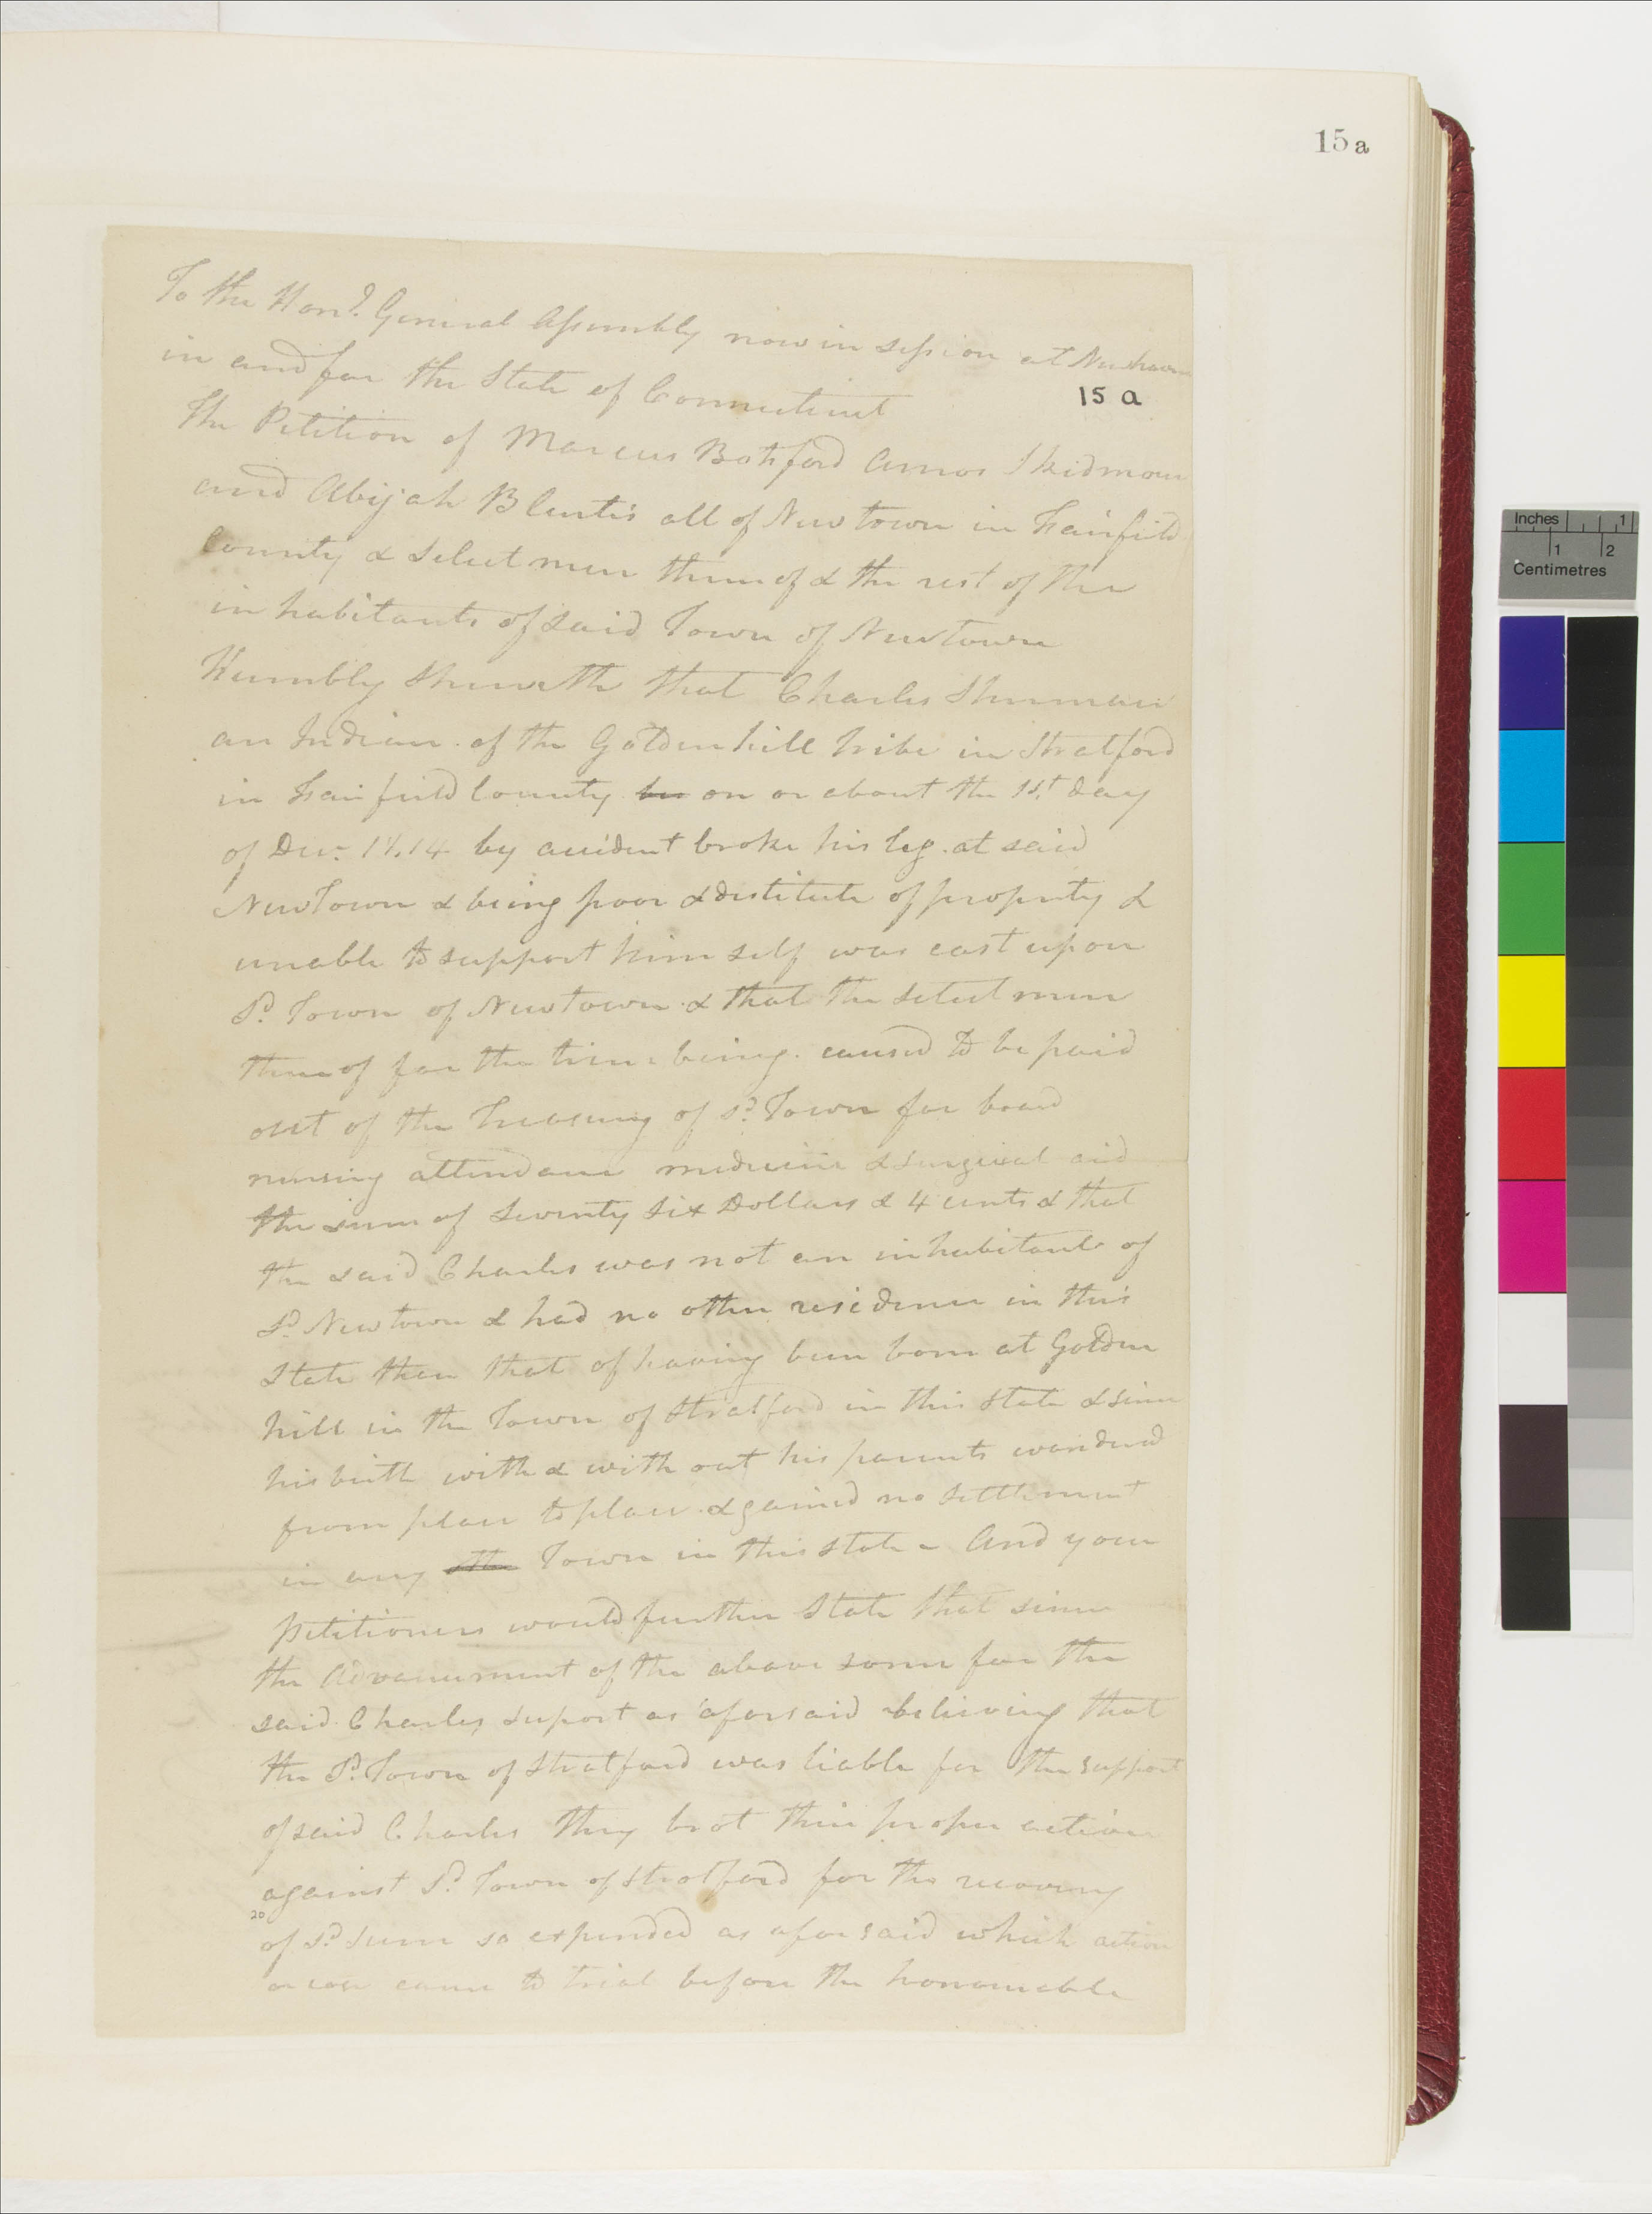 15 a
To the Hon.d General Assembly now in session at Newhaven
in and for the State of Connecticut
15 a
The Petition of Marcus Botsford Amos Skidmore
and Abijah B Curtis all of Newtown in Fairfield
County & Select men thereof & the rest of the
in habitants of said Town of Newtown
Humbly Sheweth that Charles Shurman
an Indian of the Goldenhill tribe in Stratford
in Fairfield County on or about the 1st day
of Decr. 1814 by accident broke his leg at said
NewTown & being poor & distitute of property &
unable to support him self was cast upon
Sd. Town of Newtown & that the Select men
thereof for the time being caused to be paid
out of the Treasury of sd. Town for board
nursing attendance medicine & surgical aid
the sum of Seventy Six Dollars & 4 cents & that
the said Charles was not an inhabitant of
Sd. Newtown & had no other residence in this
State than that of having been born at Golden
hill in the Town of Stratford in this State & since
his birth with & with out his parents wandered
from place to place & gained no settlement
in any Town in this State - And your
Petitioners would further State that since
the Advancement of the above sum for the
said Charles, suport as aforsaid believing that
the Sd. Town of Stratford was liable for the support
of said Charles they brot their proper action
against Sd. Town of Stratford for the recovery
20
of sd. sum so expended as aforsaid which action
or case came to trial before the honourable